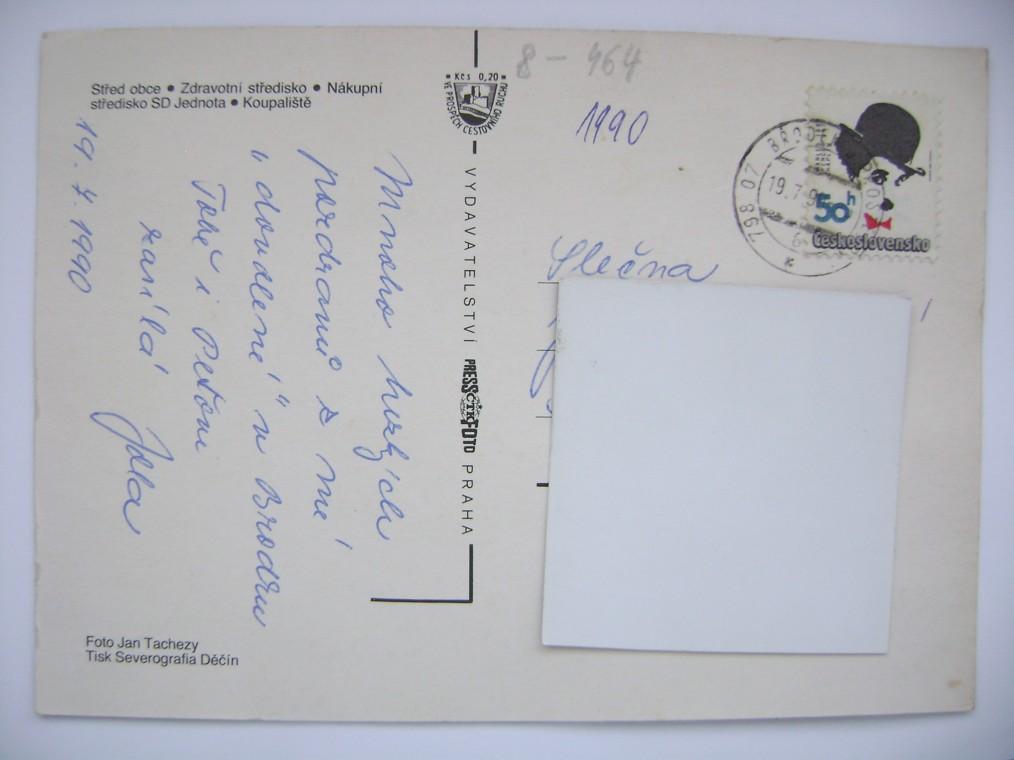 Střed obce • Zdravotní středisko • Nákupní
středisko SD Jednota • Koupaliště
Kčs 0,20
VE PROSPĚCH CESTOVNÍHO RUCHU
VYDAVATELSTVÍ PRESSFOTO PRAHA
ČTK
8 - 464
1990
798 07
19.7.9
50h
Československo
Slečna
Mnoho hezkých
pozdravů z mé
„dovolené" v Brodku
Tobě i Peťovi
zasílá
19. 7. 1990
Foto Jan Tachezy
Tisk Severografia Děčín